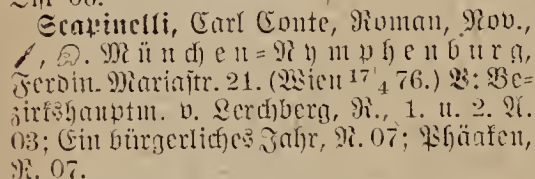 Scapinelli, Carl Conte, Roman, Nov.,
München-Nymphenburg,
Ferdin. Mariastr. 21. (Wien 17/4 76.) V: Be-
zirkshauptm. v. Lerchberg, R., 1. u. 2. A.
03; Ein bürgerliches Jahr, R. 07; Phäaken,
R. 07.